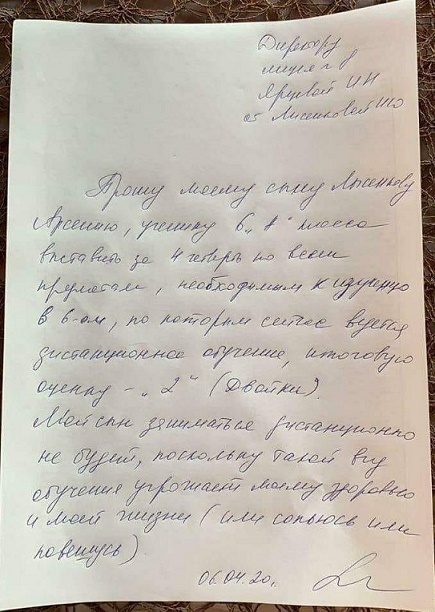 Директору
лицея г 8
Ярцевой ИН
от Лысенковой ИЮ
Прошу моему сыну Лысенкову
Арсению, ученику 6 „А" класса
выставить за 4 четверть по всем
предметам, необходимым к изучению
в 6-ом, по которым сейчас ведется
дистанционное обучение, итоговую
оценку - „2" (Двойки).
Мой сын заниматься дистанционно
не будет, поскольку такой вид
обучения угрожает моему здоровью
и моей жизни (или сопьюсь или
повешусь)
06.04.20г.